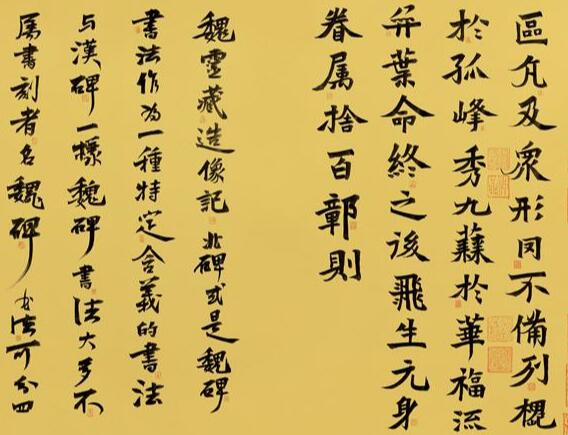 區凢及眾形罔不備列槐
於孤峰秀九蘓於華福流
弈葉命終之後飛生元身
眷属捨百鄣則
魏靈藏造像記北碑或是魏碑
書法作为一種特定含義的書法
与漢碑一樣魏碑書法大多不
属書刻者名魏碑書法可分四